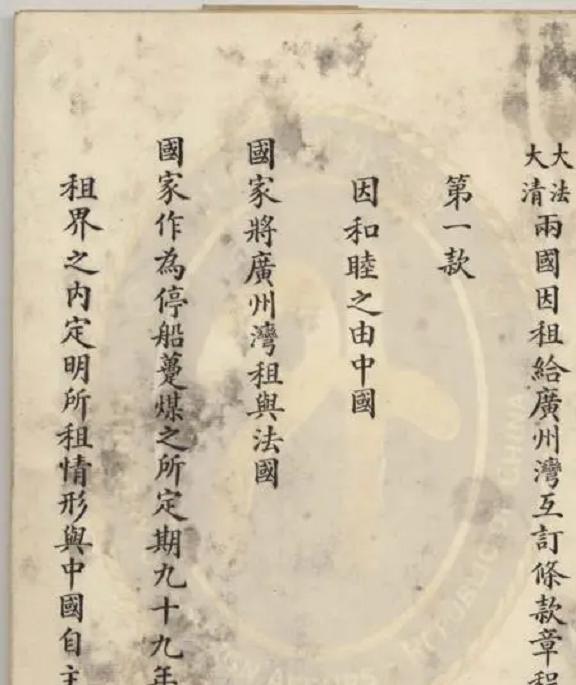 大清
大法
兩國因租給廣州灣互訂條款章程
第一款
因和睦之由中國
國家將廣州灣租與法國
國家作為停船躉煤之所定期九十九年
租界之內定明所租情形與中國自主